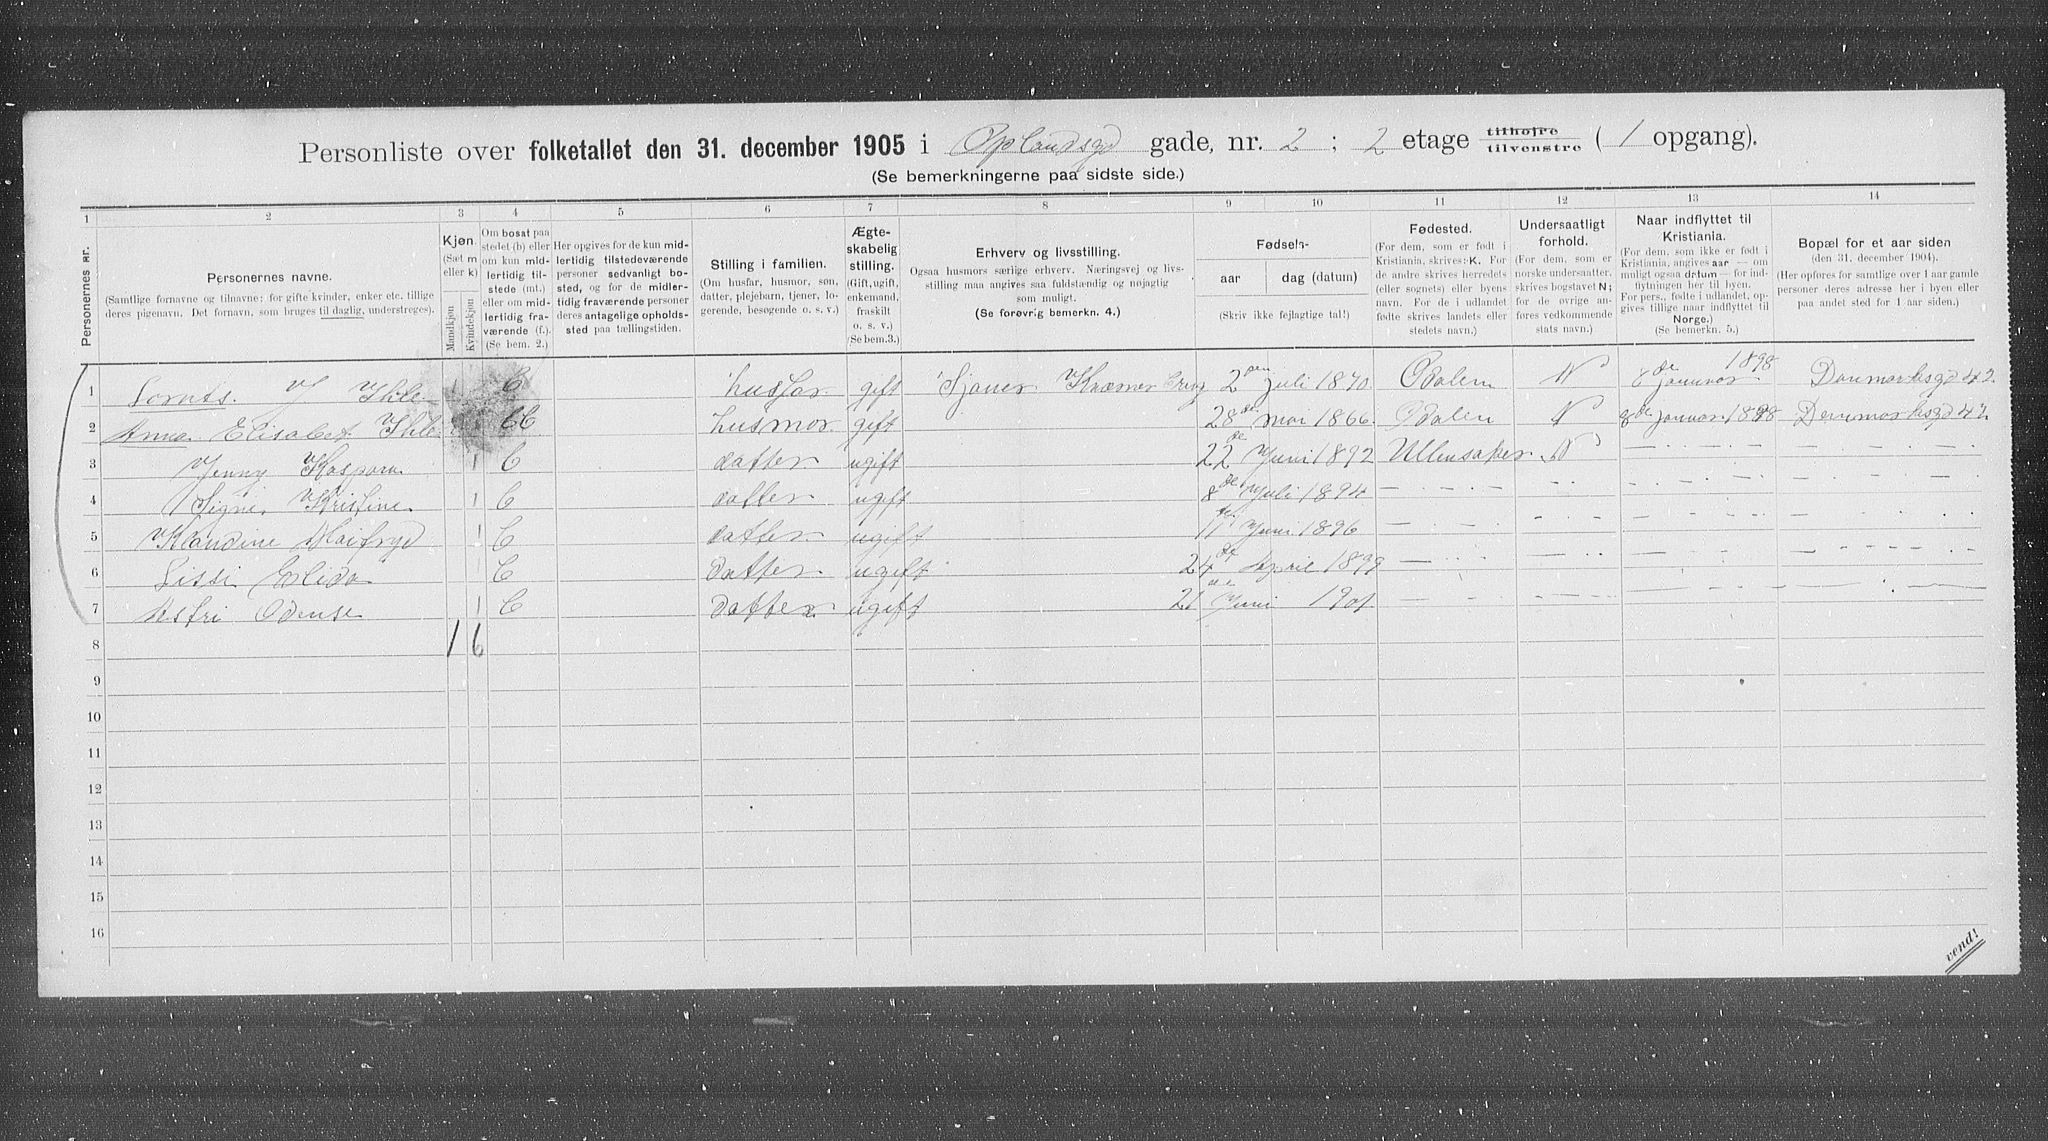 Personliste over folketallet den 31. december 1905 i Oplandsgd gade, nr. 2 ; 2 etage tilhøjre tilvenstre ( 1 opgang).
(Se bemerkningerne paa sidste side.)
1 2 3 4 5 6 7 8 9 10 11 12 13 14
Personernes nr.
Personernes navne.
(Samtlige fornavne og tilnavne; for gifte kvinder, enker etc. tillige
deres pigenavn. Det fornavn, som bruges til daglig, understreges).
Kjøn.
(Sæt m
eller k)
Mandkjøn
Kvindekjøn
Om bosat paa
stedet (b) eller
om kun mid-
lertidig til-
stede (mt.)
eller om mid-
lertidig fra-
værende (f.).
(Se bem. 2.)
Her opgives for de kun mid-
lertidig tilstedeværende
personer sedvanlig bo-
sted, og for de midler-
tidig fraværende personer
deres antagelige opholds-
sted paa tællingstiden.
Stilling i familien.
(Om husfar, husmor, søn,
datter, plejebarn, tjener, lo-
gerende, besøgende o. s. v.)
Ægte-
skabelig
stilling.
(Gift, ugift,
enkemand,
fraskilt
o. s. v.)
(Se bem.3.)
Erhverv og livsstilling.
Ogsaa husmors særlige erhverv. Næringsvej og livs-
stilling maa angives saa fuldstændig og nøjagtig
som muligt.
(Se forøvrig bemerkn. 4.)
Fødsels-
aar
dag (datum)
(Skriv ikke fejlagtige tal!)
Fødested.
(For dem, som er født i
Kristiania, skrives: K. For
de andre skrives herredets
(eller sognets) eller byens
navn. For de i udlandet
fødte skrives landets eller
stedets navn.)
Undersaatligt
forhold.
(For dem, som er
norske undersaatter,
skrives bogstavet N;
for de øvrige an-
føres vedkommende
stats navn.)
Naar indflyttet til
Kristiania.
(For dem, som ikke er født i
Kristiania, angives aar — om
muligt ogsaa datum — for ind-
flytningen her til byen.
For pers., fødte i udlandet, op-
gives tillige naar indflyttet til
Norge.)
(Se bemerkn. 5.)
Bopæl for et aar siden
(den 31. december 1904).
(Her opføres for samtlige over 1 aar gamle
personer deres adresse her i byen eller
paa andet sted for 1 aar siden.)
1 Lornts. J Ihle 1 husfar gift Sjauer Kræmer 2 den juli 1870 Odalen N 8 de januar 1898 Danmarksgd 42.
2 Anna Elisabet Ihle husmor gift 28 de mai 1866 Odalen N 8 de januar 1898 Danmarksgd 42
3 Jenny Kaspara 1 datter ugift 22 de Juni 1892 Ullensaker N
4 Signe Kristine 1 datter ugift 8 de Juli 1894
5 Klaudine 1 datter ugift 11 de Juni 1896
6 Lissi Elida 1 datter ugift 24 de April 1899
7 Asfri Odense 1 datter ugift 21 de Juni 1901
8 1 6
9
10
11
12
13
14
15
16
vend!